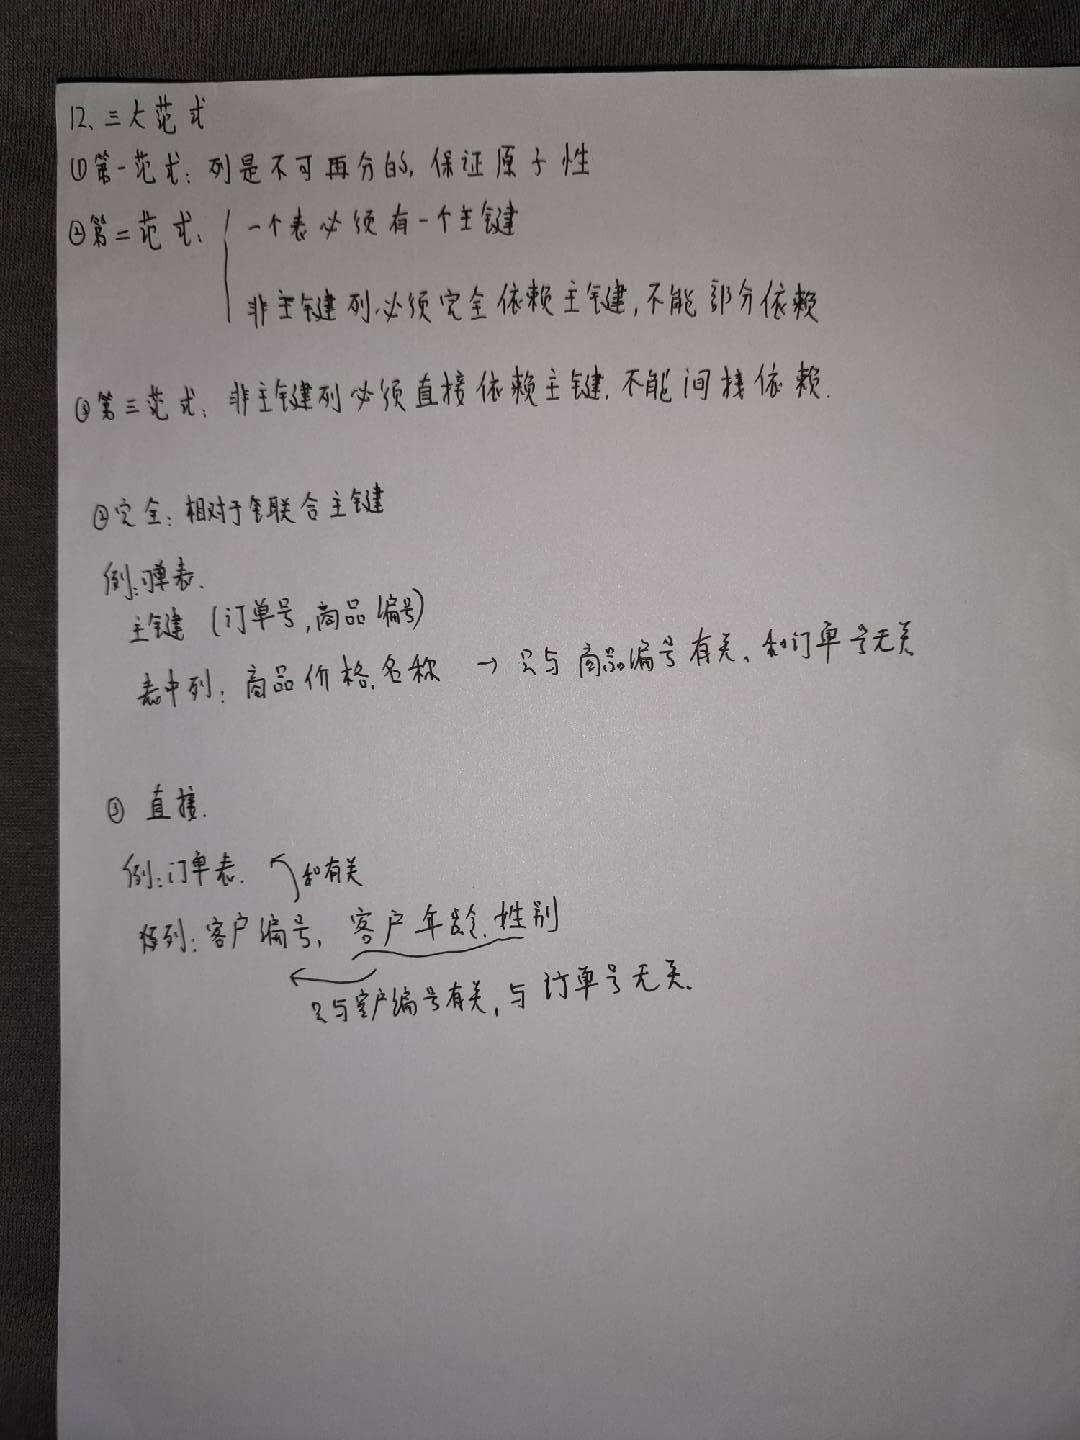 12、三大范式
①第一范式：列是不可再分的，保证原子性
②第二范式：一个表必须有一个主键
非主键列必须完全依赖主键，不能部分依赖
③第三范式：非主键列必须直接依赖主键，不能间接依赖.
②完全：相对于联合主键
例：订单表.
主键（订单号，商品编号）
表中列：商品价格、名称 → 只与商品编号有关、和订单号无关
③ 直接.
例：订单表. 和有关
列：客户编号，客户年龄、性别
只与客户编号有关，与订单号无关.